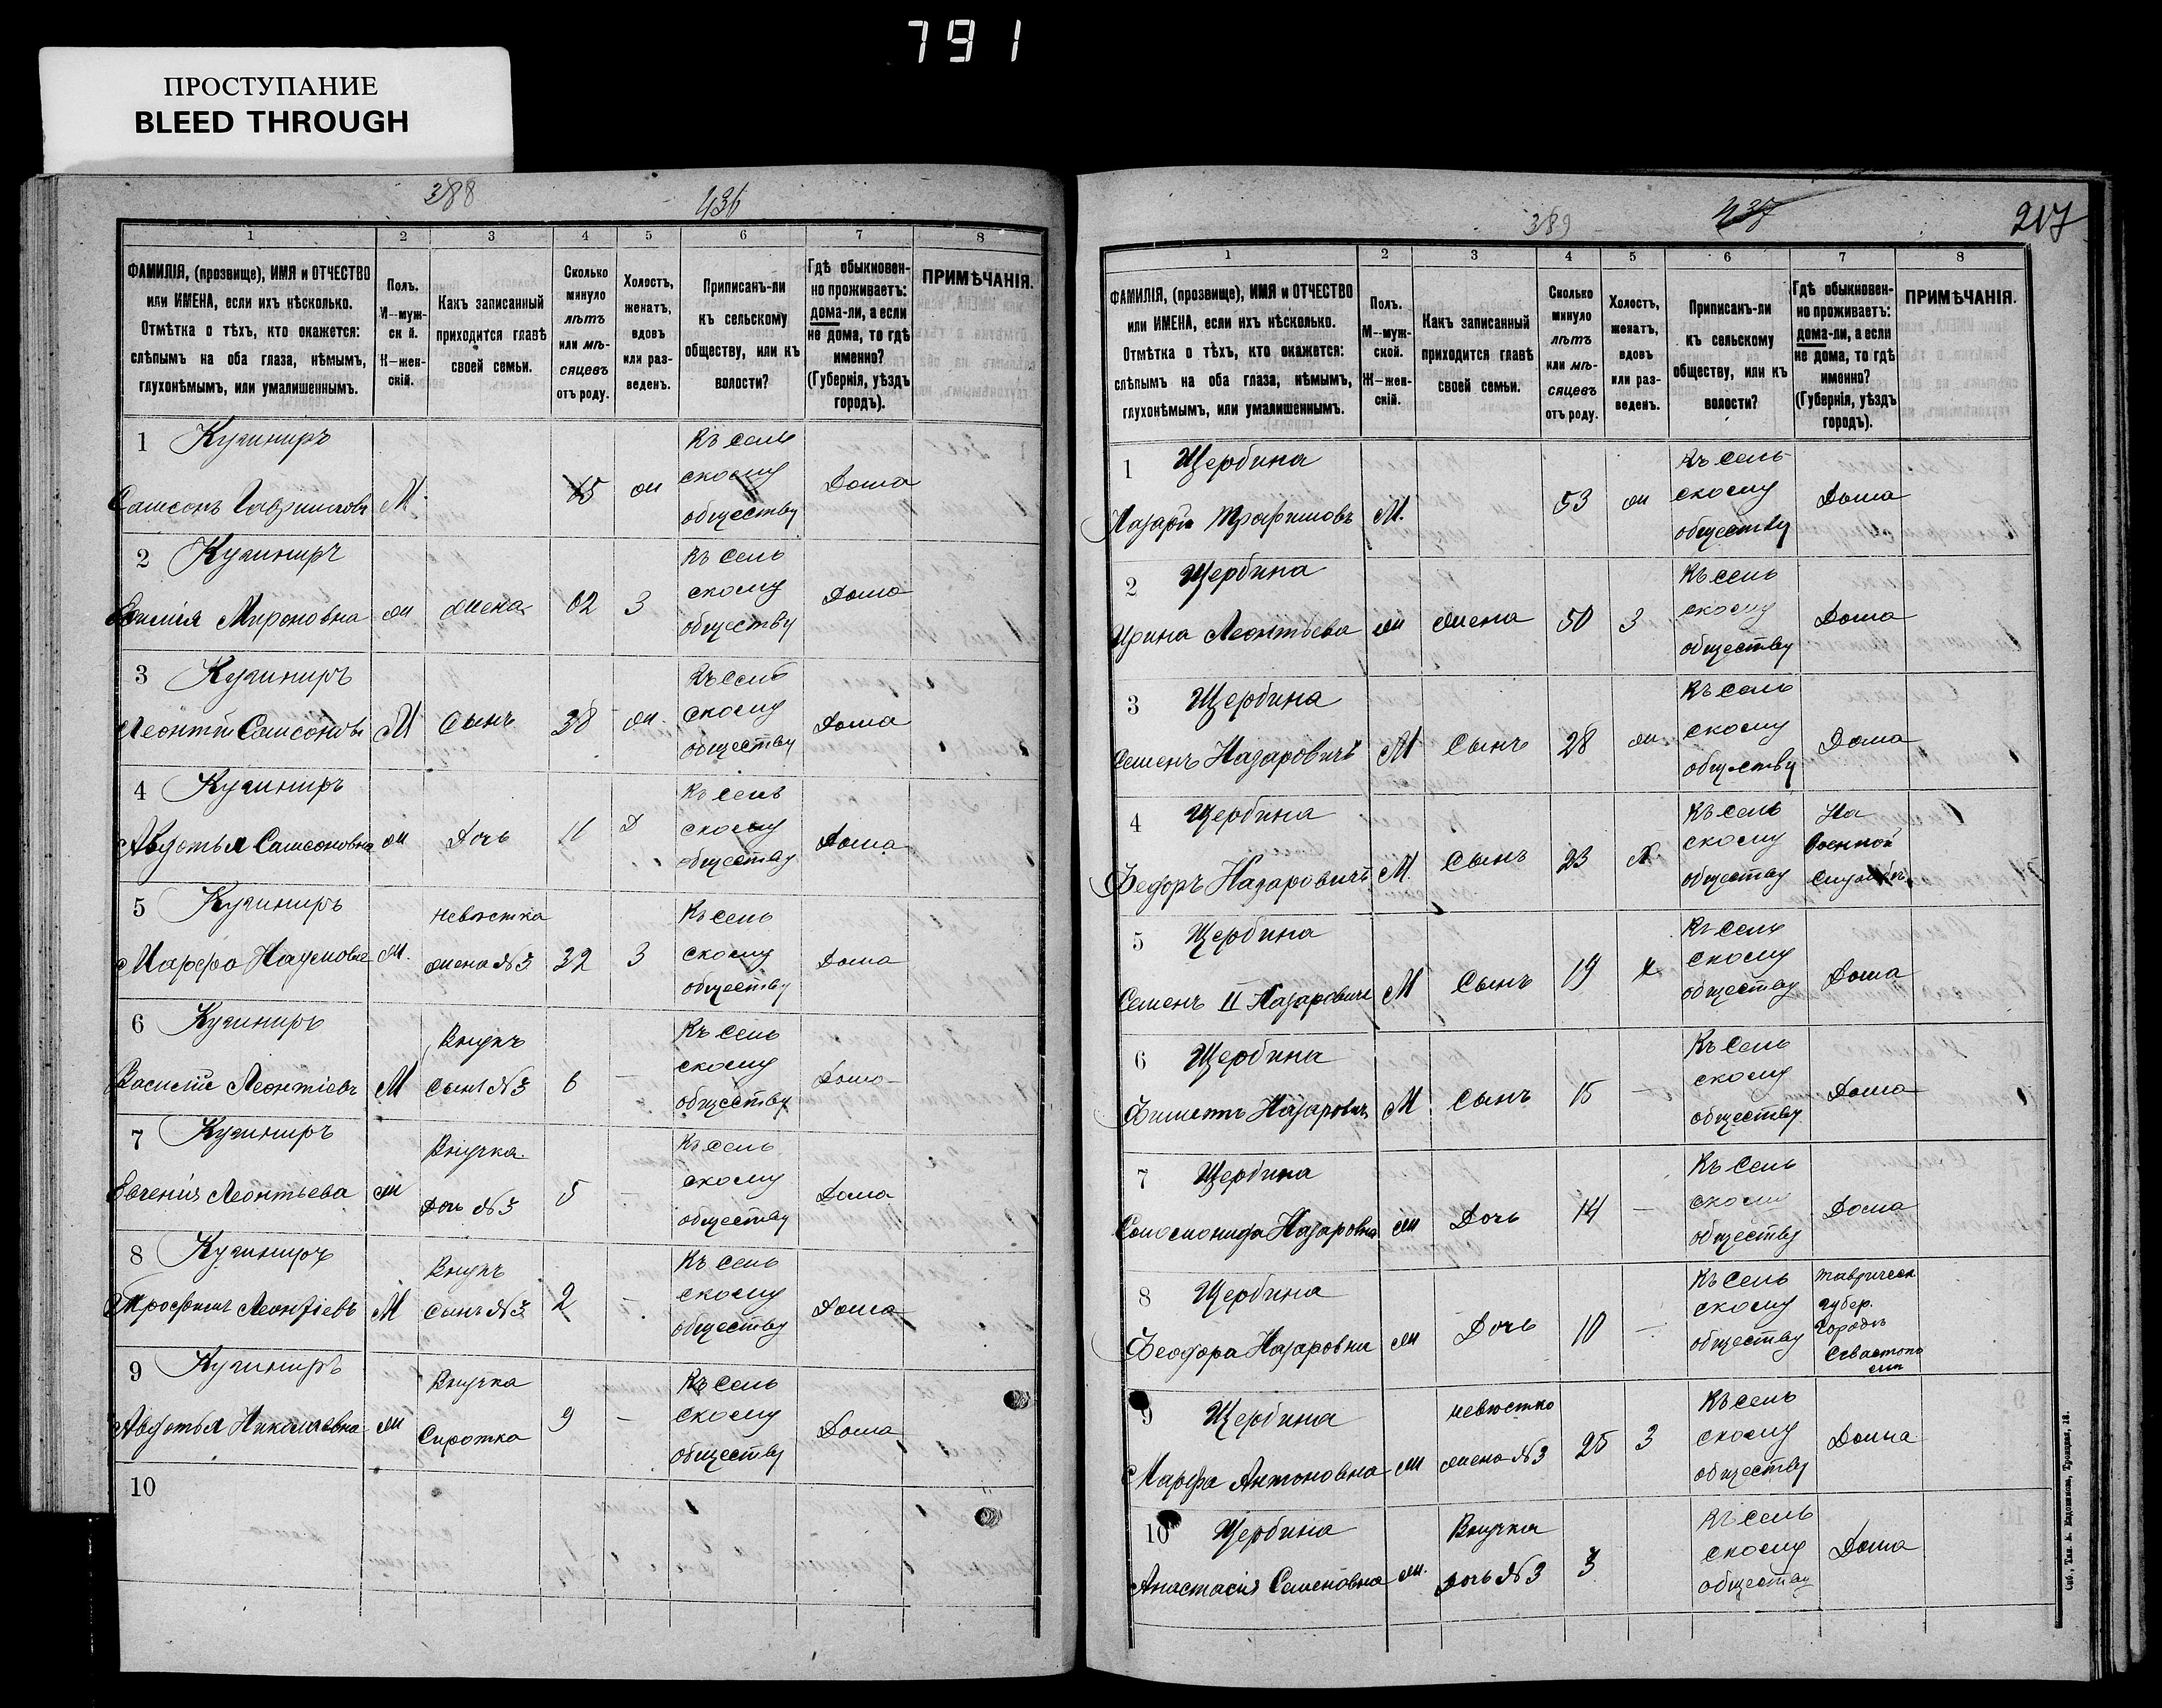 791
ПРОСТУПАНИЕ
BLEED THROUGH
388 436
1 2 3 4 5 6 7 8
ФАМИЛІЯ, (прозвище), ИМЯ и ОТЧЕСТВО или ИМЕНА, если ихъ нѣсколько. Отмѣтка о тѣхъ, кто окажется: слѣпымъ на оба глаза, нѣмымъ, глухонѣмымъ, или умалишеннымъ.
Полъ. М—муж-ск й. Ж—жен-скій.
Какъ записанный приходится главѣ своей семьи.
Сколько минуло лѣтъ или мѣ-сяцевъ отъ роду.
Холостъ, женатъ, вдовъ или раз-веденъ.
Приписанъ-ли къ сельскому обществу, или къ волости?
Гдѣ обыкновен-но проживаетъ: дома-ли, а если не дома, то гдѣ именно? (Губернія, уѣздъ городъ).
ПРИМѢЧАНІЯ.
1 Кушниръ
Самсонъ М. 65 ж Къ сель скому обществу Дома
2 Кушниръ
Мироновна ж жена 62 З Къ сель скому обществу Дома
3 Кушниръ
Леонтій Самсоновъ М Сынъ 38 ж. Къ сель скому обществу Дома
4 Кушниръ
Авдотья Самсоновна ж Дочь 11 Д Къ сель скому обществу Дома
5 Кушниръ
Марфа Наумовна М. невѣстка жена №3 32 З Къ сель скому обществу Дома
6 Кушниръ
Василій Леонтіевъ М Внукъ сынъ №3 6 — Къ сель скому обществу Дома
7 Кушниръ
Евгенія Леонтьева ж Внучка дочь №3 5 — Къ сель скому обществу Дома
8 Кушниръ
Леонтіевъ М Внукъ сынъ №3 2 — Къ сель скому обществу Дома
9 Кушниръ
Авдотья Николаевна ж Внучка Сиротка 9 — Къ сель скому обществу Дома
10
389 437 217
1 2 3 4 5 6 7 8
ФАМИЛІЯ, (прозвище), ИМЯ и ОТЧЕСТВО или ИМЕНА, если ихъ нѣсколько. Отмѣтка о тѣхъ, кто окажется: слѣпымъ на оба глаза, нѣмымъ, глухонѣмымъ, или умалишеннымъ.
Полъ. М—муж-ской. Ж—жен-скій.
Какъ записанный приходится главѣ своей семьи.
Сколько минуло лѣтъ или мѣ-сяцевъ отъ роду.
Холостъ, женатъ, вдовъ или раз-веденъ.
Приписанъ-ли къ сельскому обществу, или къ волости?
Гдѣ обыкновен-но проживаетъ: дома-ли, а если не дома, то гдѣ именно? (Губернія, уѣздъ городъ).
ПРИМѢЧАНІЯ.
1 Щербина
Назарій Трафимовъ М. 53 ж Къ сель скому обществу Дома
2 Щербина
Ирина Леонтьева ж жена 50 З Къ сель скому обществу Дома
3 Щербина
Семенъ Назаровичъ М Сынъ 28 ж Къ сель скому обществу Дома
4 Щербина
Федоръ Назаровичъ М. Сынъ 23 х Къ сель скому обществу На Военной Службѣ
5 Щербина
Семенъ II Назаровичъ М Сынъ 19 х Къ сель скому обществу Дома
6 Щербина
Назаровичъ М Сынъ 15 — Къ сель скому обществу Дома
7 Щербина
Назаровна ж Дочь 14 — Къ сель скому обществу Дома
8 Щербина
Феодора Назаровна ж Дочь 10 — Къ сель скому обществу Таврическ губер. городъ Севастополь
9 Щербина
Марфа Антоновна ж невѣстка жена №3 25 З Къ сель скому обществу Дома
10 Щербина
Анастасія Семеновна ж. Внучка дочь №3 3 Къ сель скому обществу Дома